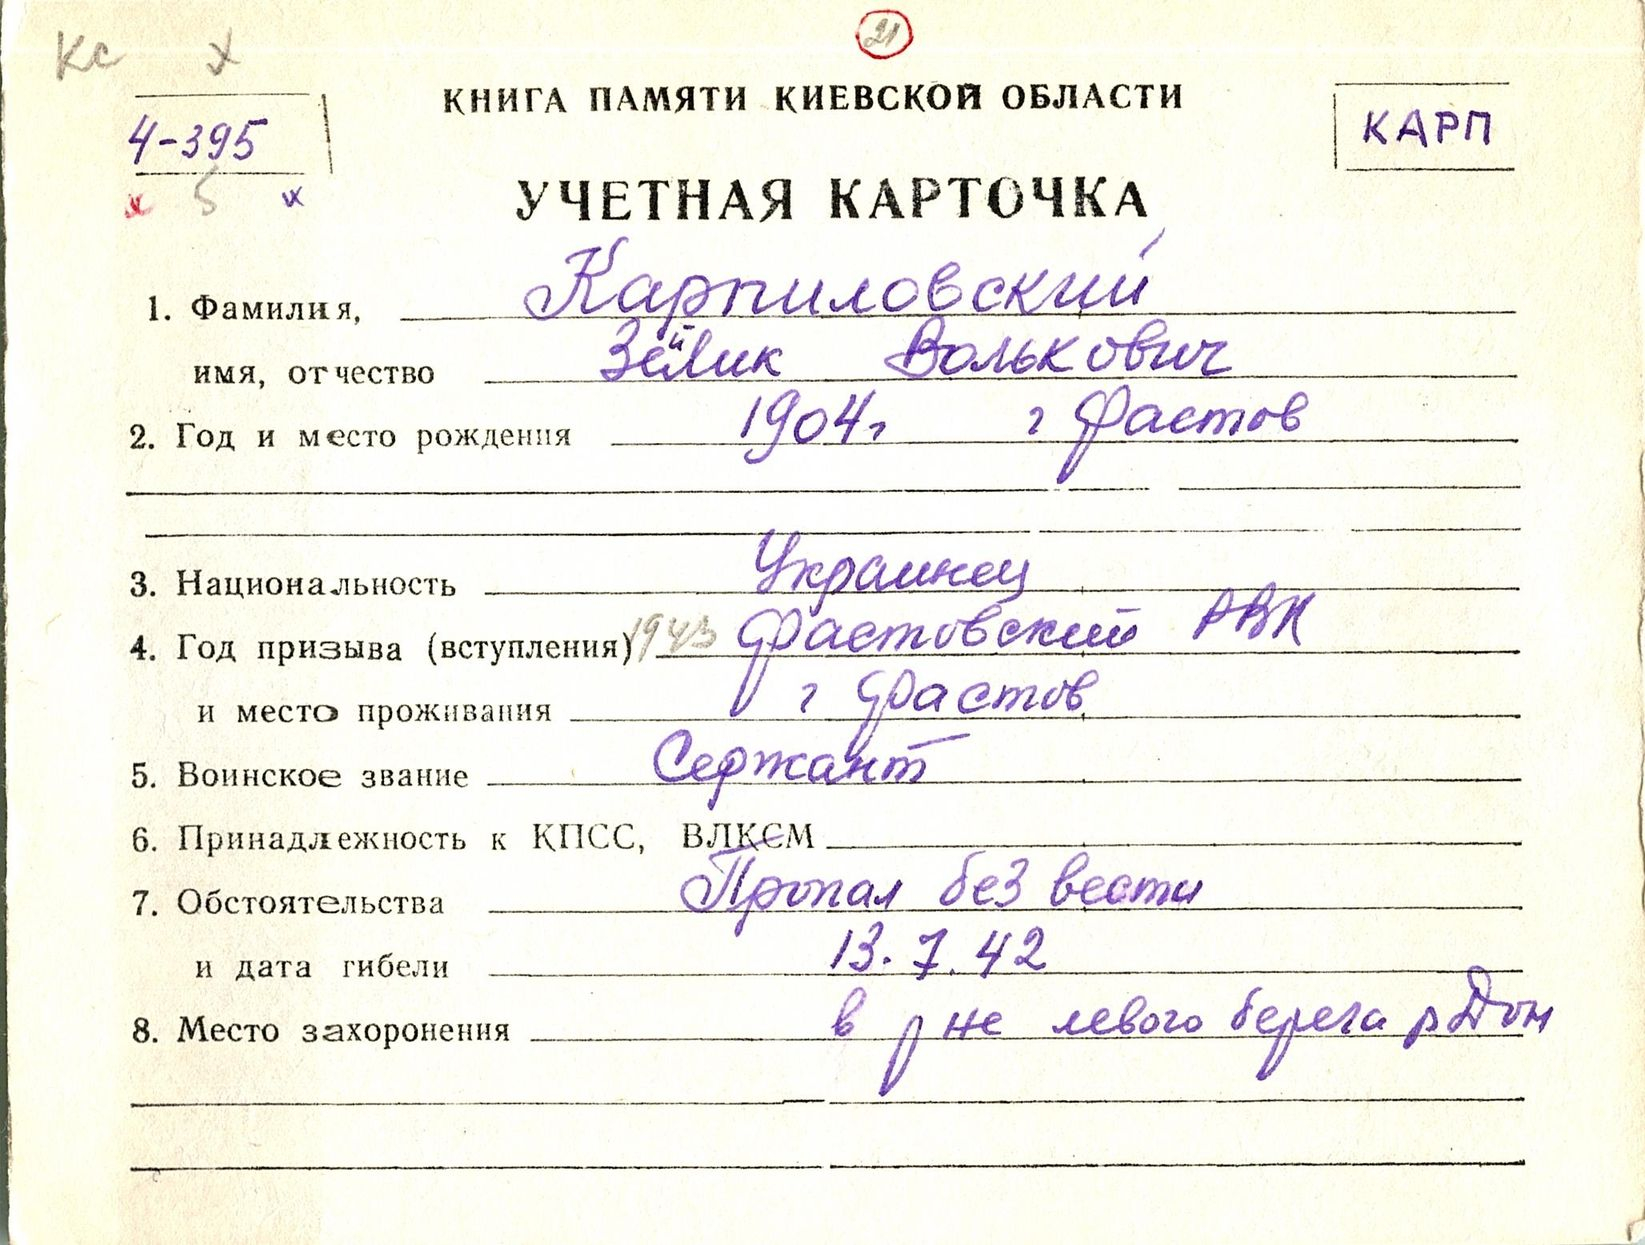 Кс х
21
КНИГА ПАМЯТИ КИЕВСКОЙ ОБЛАСТИ
4-395
КАРП
х 5 х
УЧЕТНАЯ КАРТОЧКА
1. Фамилия, Карпиловский
имя, отчество Зейлик Волькович
2. Год и место рождения 1904г г Фастов
3. Национальность Украинец
4. Год призыва (вступления) 1943 Фастовский РВК
и место проживания г Фастов
5. Воинское звание Сержант
6. Принадлежность к КПСС, ВЛКСМ
7. Обстоятельства Пропал без вести
и дата гибели 13.7.42
8. Место захоронения в р не левого берега р Дон